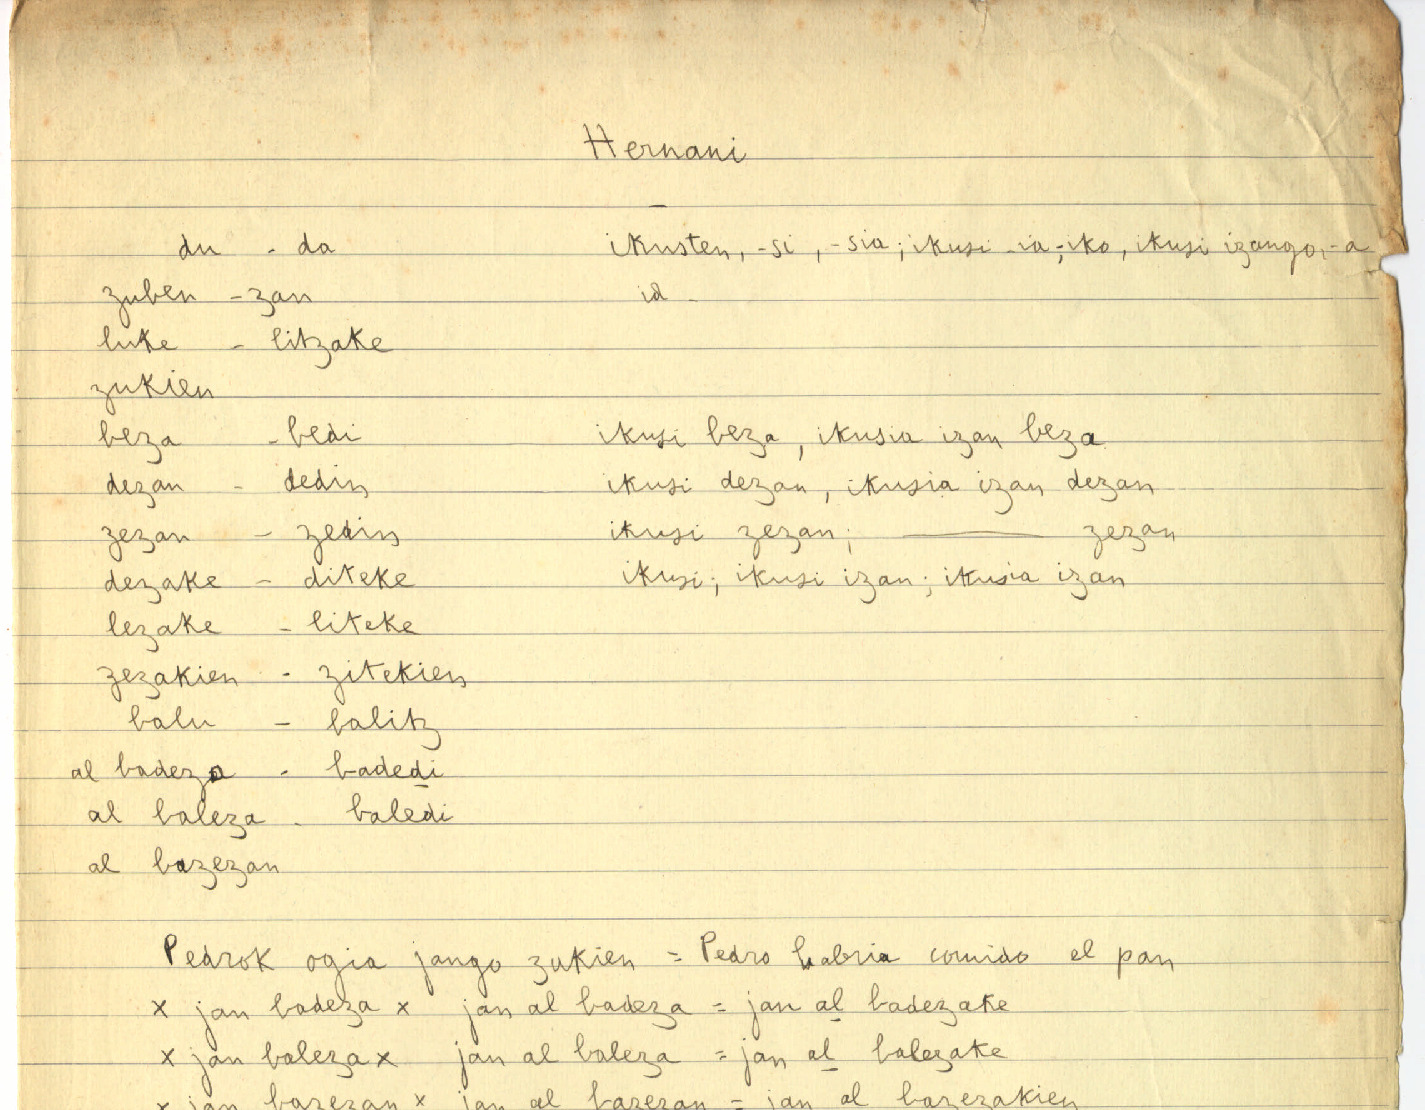 Hernani
du - da ikusten, -si, -sia; ikusi -ia; -iko, ikusi izango, -a
zuben - zan id -
luke - litzake
zukien
beza - bedi ikusi beza, ikusia izan beza
dezan - dedin ikusi dezan, ikusia izan dezan
zezan - zedin ikusi zezan; ——— zezan
dezake - diteke ikusi; ikusi izan; ikusia izan
lezake - liteke
zezakien - zitekien
balu - balitz
al badeza - badedi
al baleza - baledi
al bazezan
Pedrok ogia jango zukien = Pedro habria comido el pan
x jan badeza x jan al badeza = jan al badezake
x jan baleza x jan al baleza = jan al balezake
x jan bazezan x jan al bazezan = jan al bazezakien